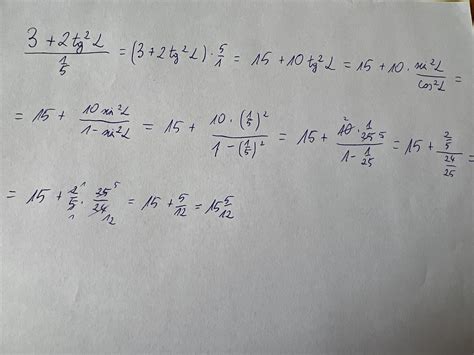 (3 + 2tg²L)/(1/5) = (3 + 2tg²L) · 5/1 = 15 + 10tg²L = 15 + 10 · sin²L/cos²L =
= 15 + 10sin²L/(1 - sin²L) = 15 + 10 · (1/5)²/(1 - (1/5)²) = 15 + 2 10 · 1/25 5/(1 - 1/25) = 15 + (2/5)/(24/25) =
= 15 + 2 1/5 1 · 25 5/24 12 = 15 + 5/12 = 15 5/12